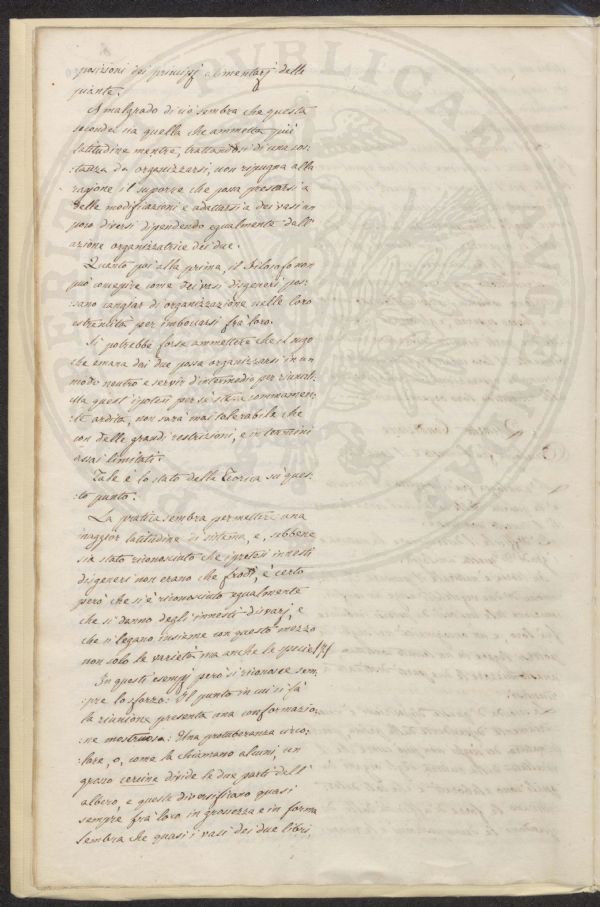 :posizioni dei principj elementarj delle
piante.
A malgrado di ciò sembra che questa
seconda sia quella che ammetta più
latitudine mentre, trattandosi di una sos:
:tanza da organizzarsi, non ripugna alla
ragione il suporre che possa prestarsi a
delle modificazioni e adattarsi a dei vasi un
poco diversi dipendendo egualmente dall'
azione organizzatrice dei due.
Quanto poi alla prima, il Filosofo non
può concepire come dei vasi disgeneri pos:
:sano cangiar di organizzazione nelle loro
estremità per imboccarsi frà loro.
Si potrebbe forse ammettere che il sugo
che emana dai due possa organizzarsi in un
modo neutro e servir d'intermedio per riunirli.
Ma quest'ipotesi per se stessa sommamen:
:te ardita, non sarà mai tolerabile che
con delle grandi restrizioni, e in termini
assai limitati.
Tale è lo stato della Teorica su ques:
:to punto.
La pratica sembra permettere una
maggior latitudine di sistema, e, sebbene
sia stato riconosciuto che i pretesi innesti
disgeneri non erano che frodi, è certo
però che si è riconosciuto egualmente
che si danno degli innesti disvarj e
che si legano insieme con questo mezzo
non solo le varietà, ma anche le specie
In questi esempj però si riconosce sem:
:pre lo sforzo: Il punto in cui si fà
la riunione presenta una conformazio:
:ne mostruosa: Una protuberanza circo:
:lare, o, come la chiamano alcuni, un
grosso cercine divide le due parti dell'
albero, e queste diversificano quasi
sempre frà loro in grossezza e in forma
sembra che quasi i vasi dei due libri,